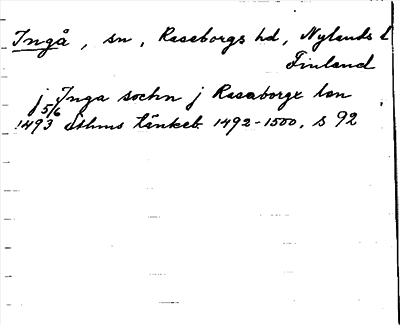 Ingå, sn, Raseborgs hd, Nylands l
Finland
j Inga sochn j Raseborgx län
1493 5/6 Sthms tänkeb. 1492-1500, s 92